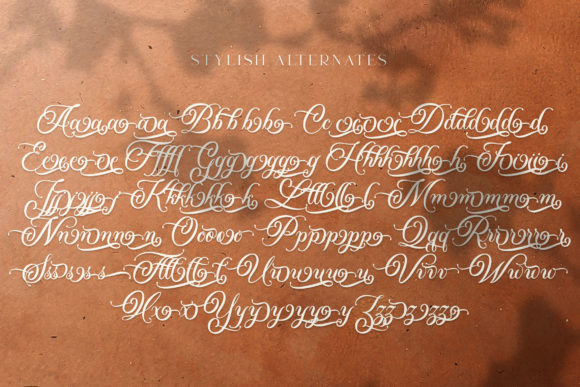 STYLISH ALTERNATES
Aaaaaaa Bbbbbb Cccccc Dddddddd
Eeeeeee Fffff Gggggggg Hhhhhhhh Iiiiii
Jjjjjj Kkkkkkk Llllll Mmmmmmm
Nnnnnnn Ooooo Ppppppp Qqq Rrrrrrrr
Ssssss Tttttt Uuuuuuu Vvvv Wwwww
Xxx Yyyyyyyy Zzzzzzz